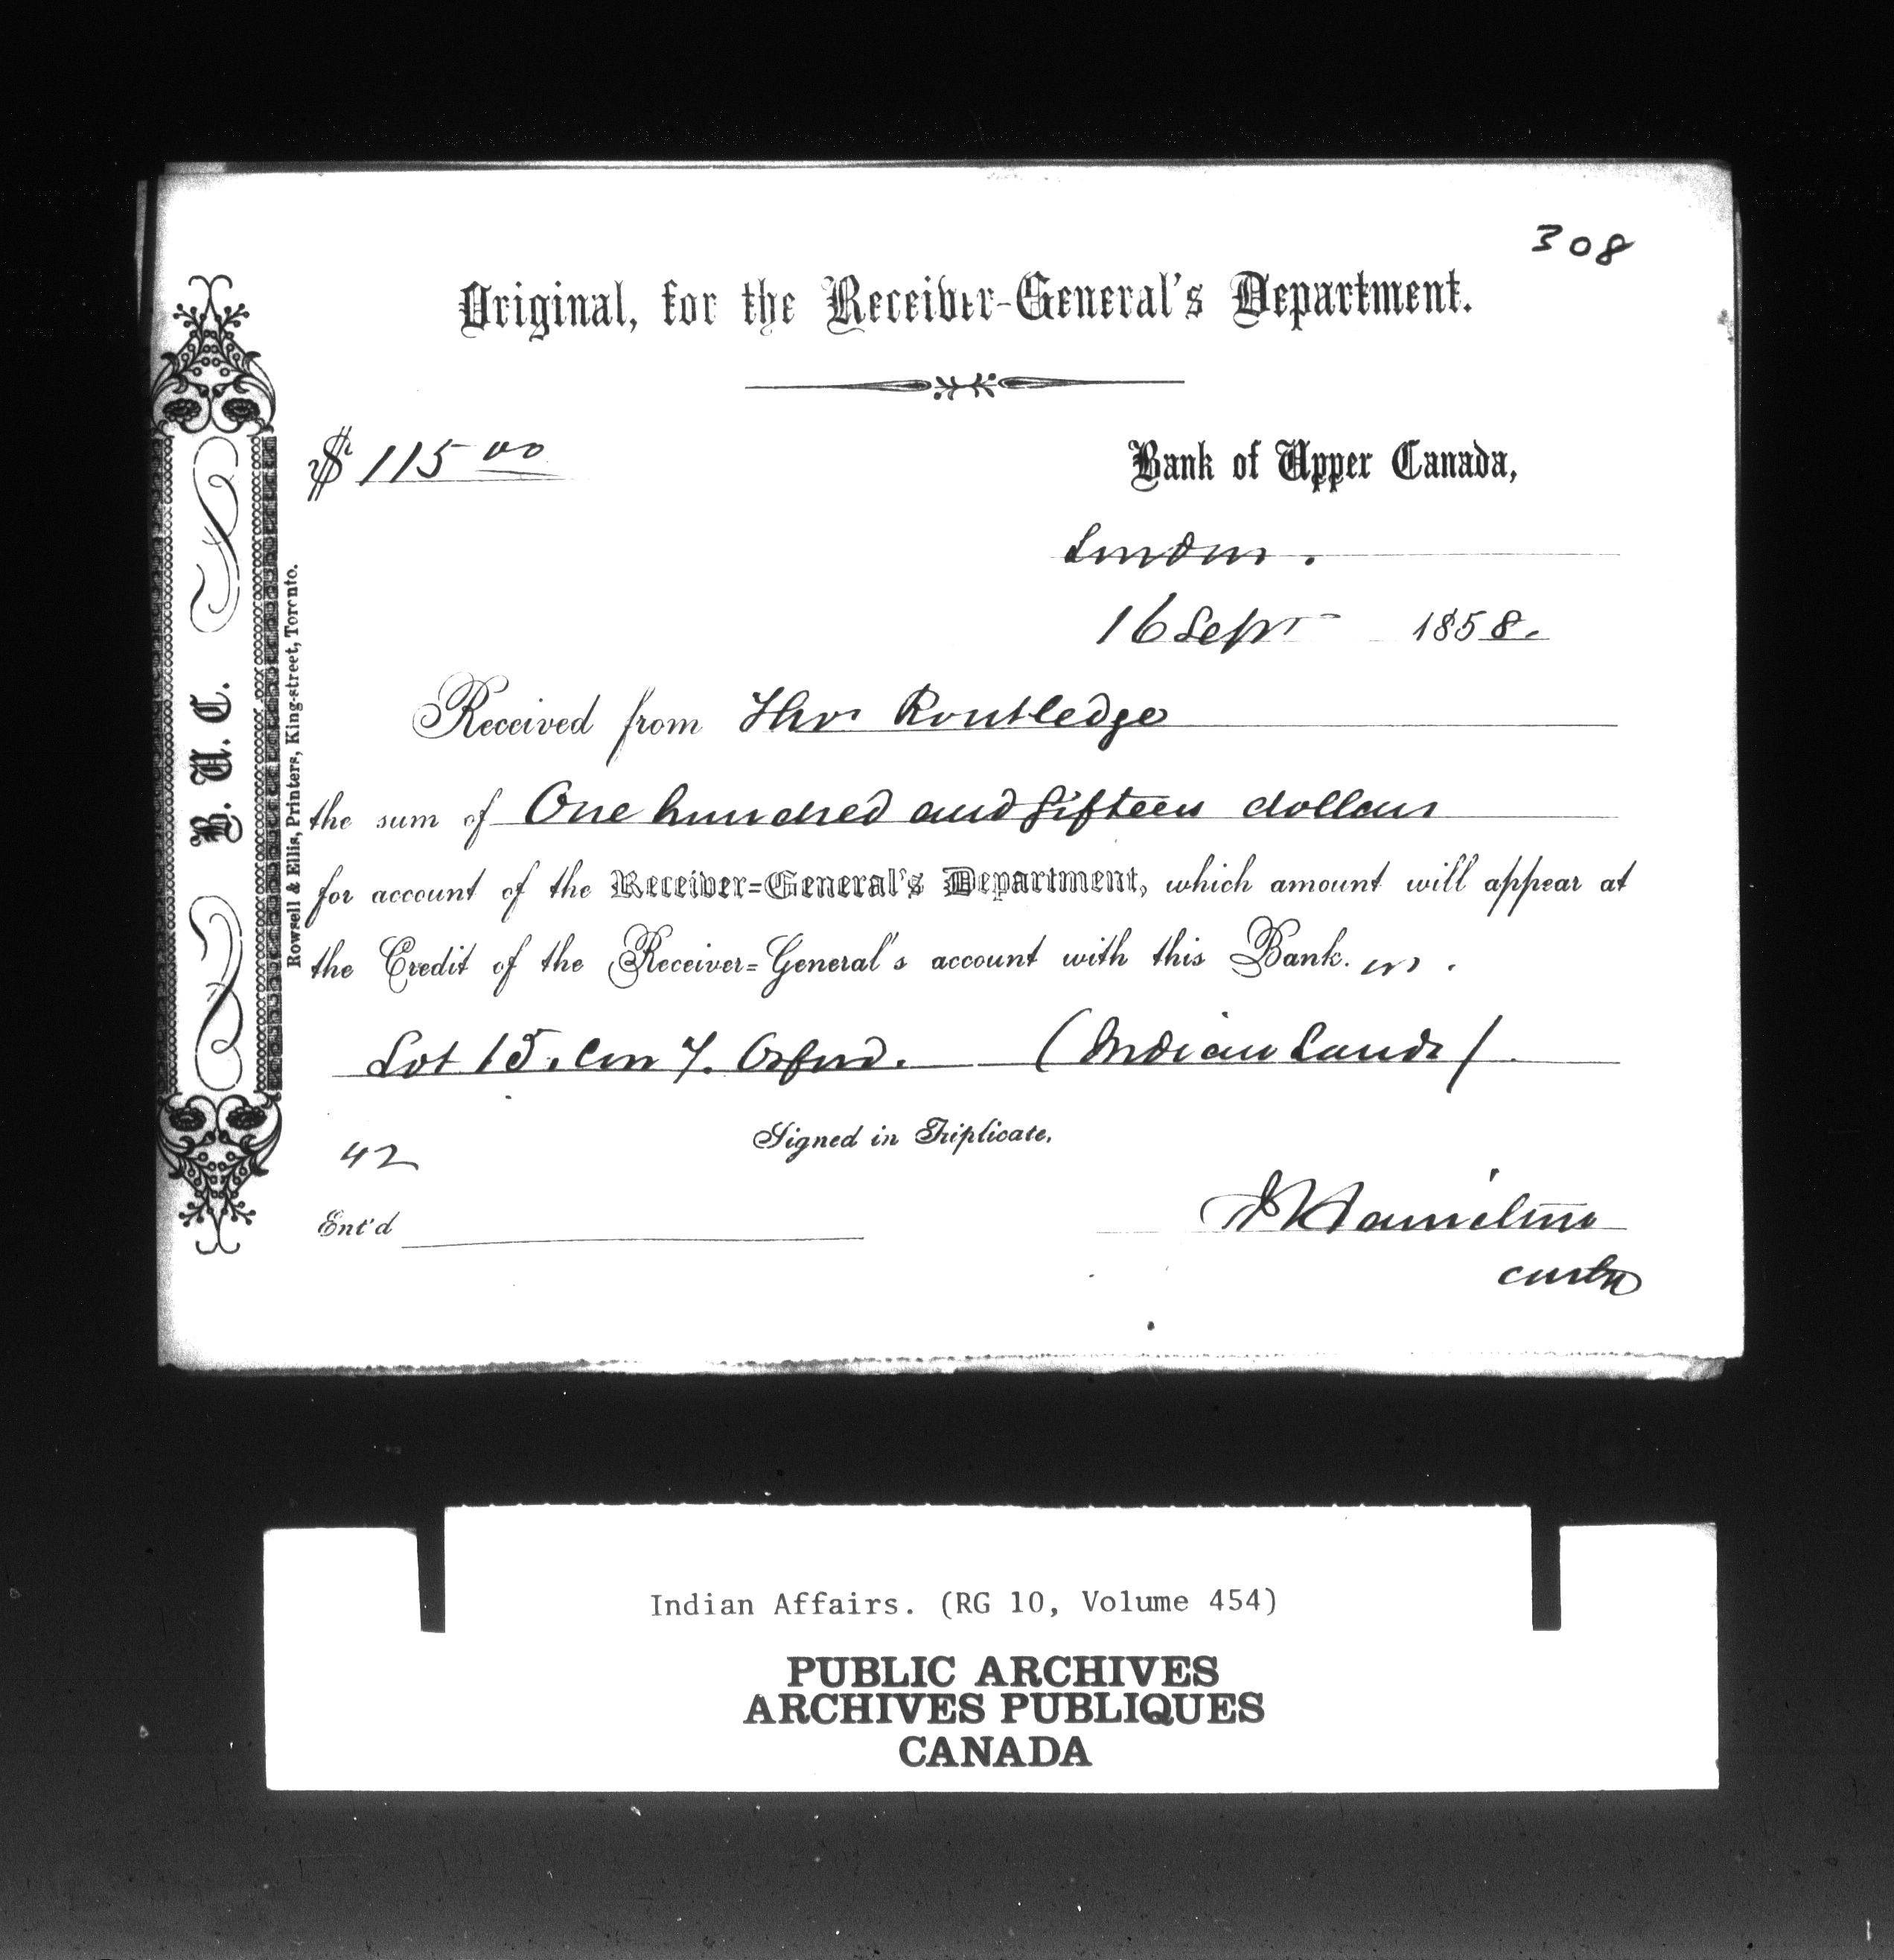 308
Original, for the Receiver-General's Department.
$ 115 00
Bank of Upper Canada,
London.
16 Sept 1858.
Received from Thos Routledge
the sum of One hundred and fifteen dollars
for account of the Receiver-General's Department, which amount will appear at
the Credit of the Receiver-General's account with this Bank. on.
Lot 15. Con 7. Orford. (Indian Lands)
42
Signed in Triplicate,
Ent'd
Hamilton
B. U. C.
Rowsell & Ellis, Printers, King-street, Toronto.
Indian Affairs. (RG 10, Volume 454)
PUBLIC ARCHIVES
ARCHIVES PUBLIQUES
CANADA